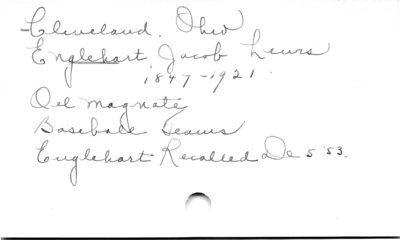 -Cleveland. Ohio
Englehart, Jacob Lewis
1847-1921.
Oil magnate
Baseball Teams
Englehart Recalled De 5 '53.